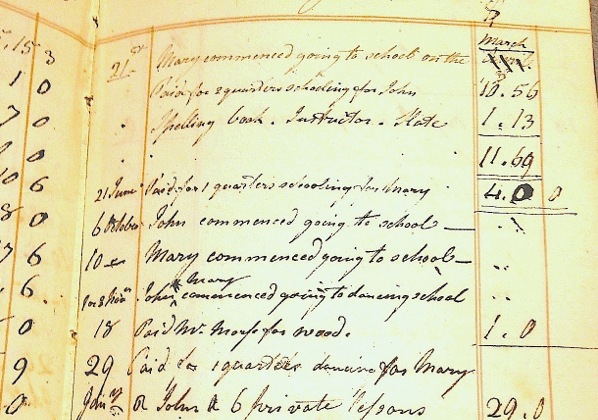 March
21st Mary commenced going to school on the
Paid for 2 quarters schooling for John 10.56
Spelling book. Instructor. Slate 1.13
11.69
21 June Paid for 1 quarters schooling for Mary 4.0 0
6 October John commenced going to school
10 Mary commenced going to school
John & Mary commenced going to dancing school
18 Paid Mr. Morse for wood. 1.0
29 Paid for 1 quarters dancing for Mary
John & 6 private lessons 29.0
.15 3
1 0
7 0
0
10 6
8 0
7 6
6
0
9
0